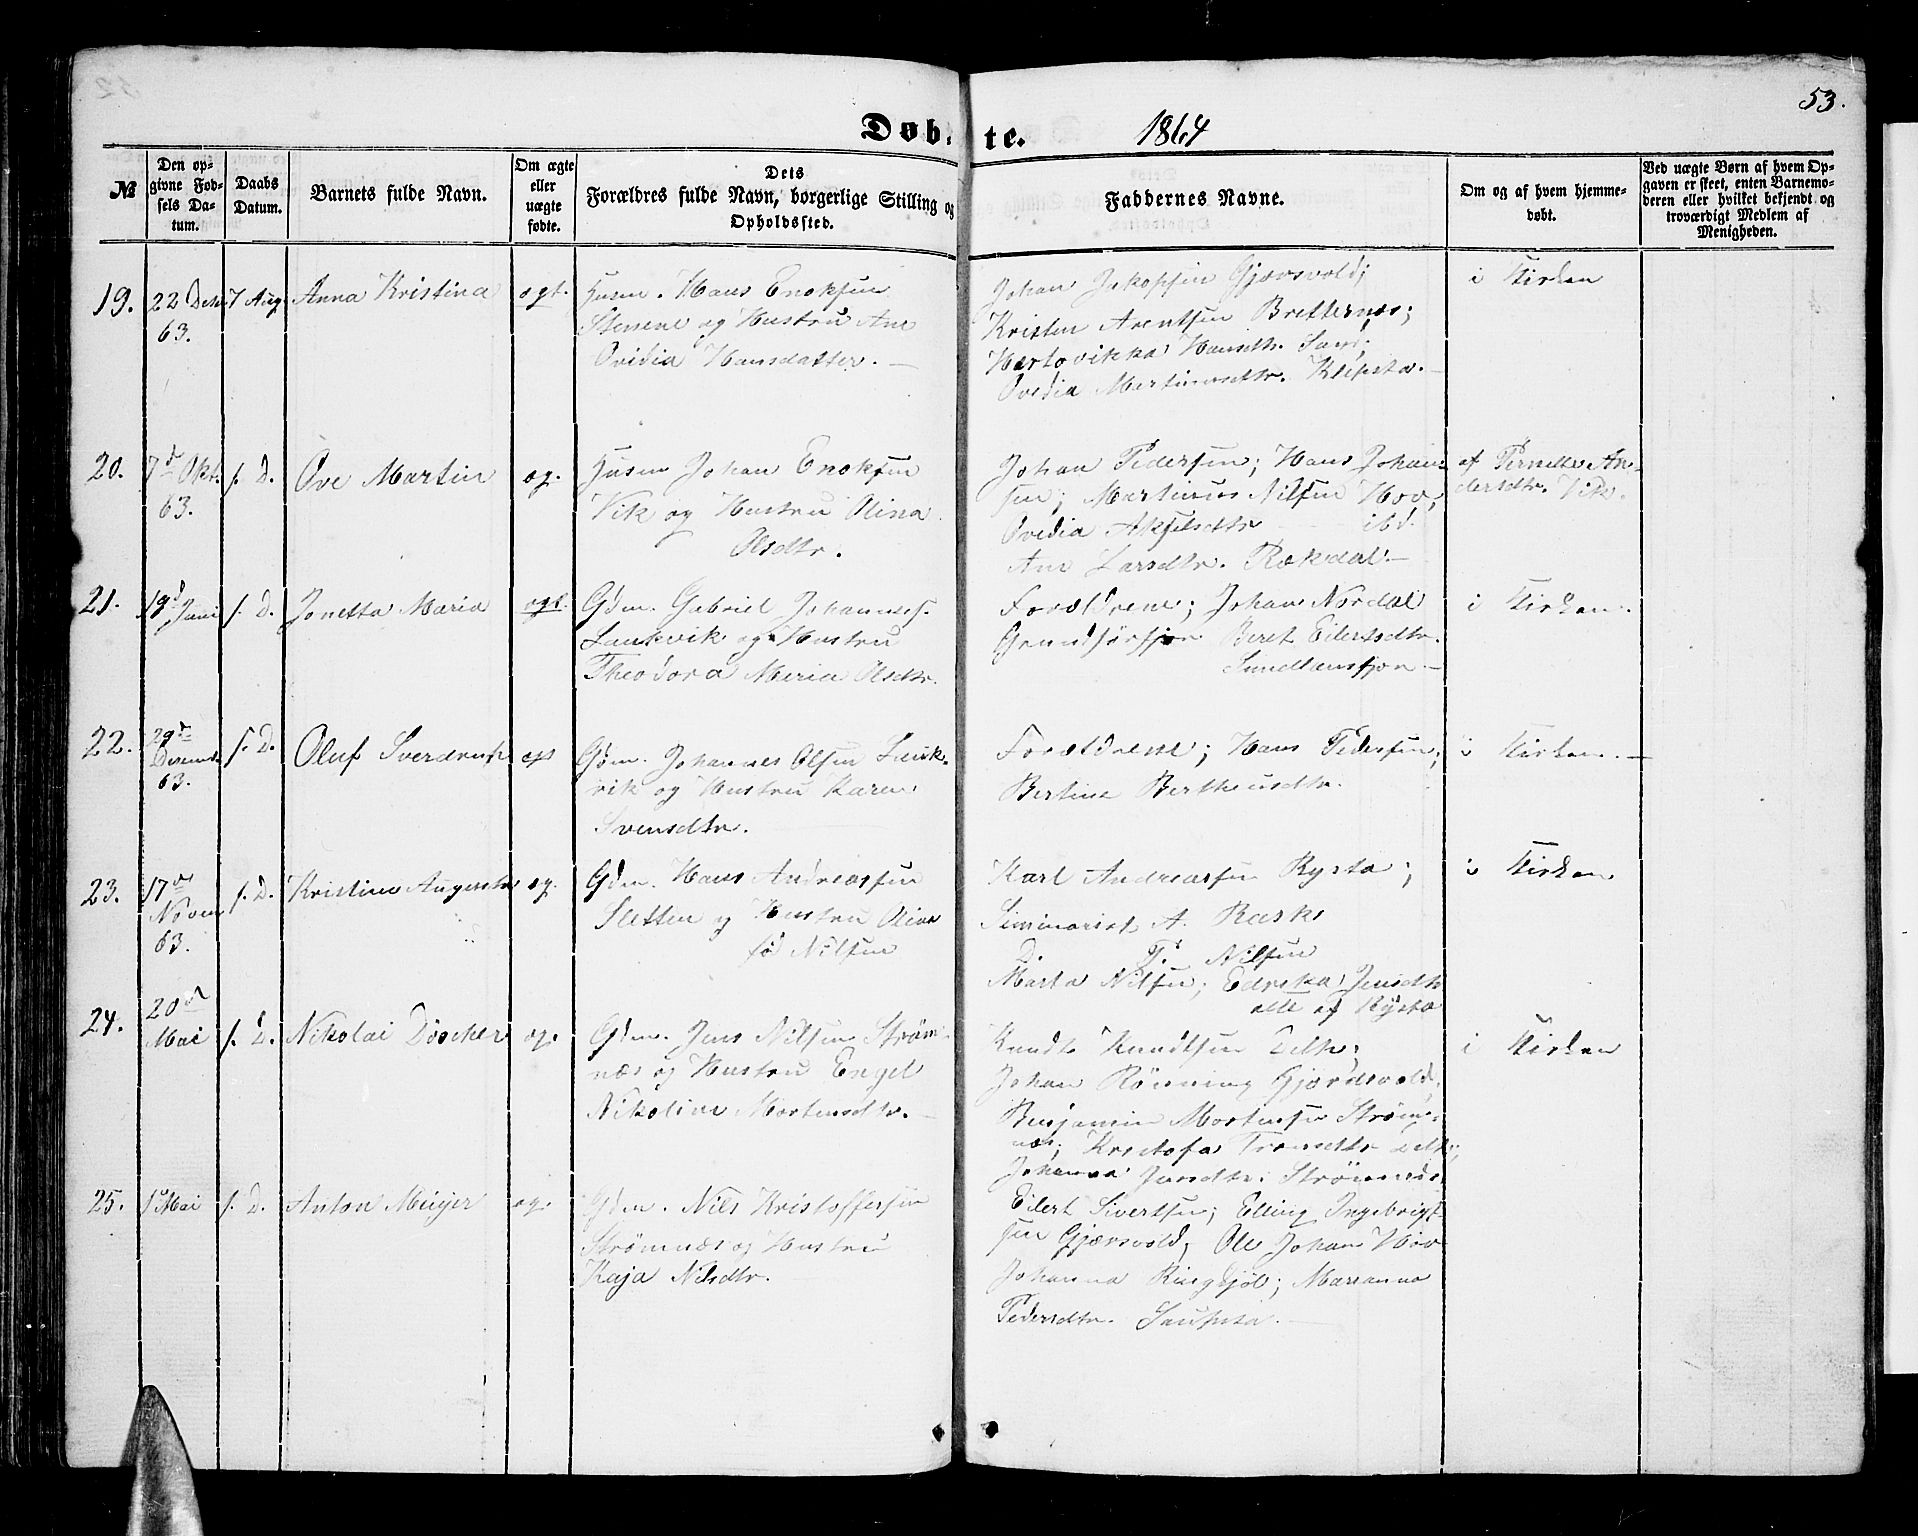 53.
Døbte. 1864
№
Den opgivne Fødsels Datum.
Daabs Datum.
Barnets fulde Navn.
Om ægte eller uægte fødte.
Dets Forældres fulde Navn, borgerlige Stilling og Opholdssted.
Faddernes Navne.
Om og af hvem hjemmedøbt.
Ved uægte Børn af hvem Opgaven er skeet, enten Barnemoderen eller hvilket bekjendt og troværdigt Medlem af Menigheden.
19. 22 Des 7 Aug Anna Kristina ægt. Husm. Hans Enoksen
63. og Hustru Ane
Ovidia Hansdatter.
Johan Jakopsen Gjærsvold; i Kirken
Kristen Arentsen Brettenes;
Hartvikka Hansdtr.
Ovidia Martinusdtr. Klipsta.
20. 7d Okt. s. D. Ove Martin æg. Husm Johan Enoksen
63. Vik og Hustru Olina
Olsdtr.
Johan Pedersen; Hans Johan- af Pernelle An-
sen; Martinus Nilsen Hov; dersdtr. Vik.
Ovidia Akselsdtr ibd.
Ane Larsdtr. Rækdal.
21. 19d Juni s. D. Jonetta Maria ægt. Gdm. Gabriel Johanness.
Laukvik og Hustru
Theodora Maria Olsdtr.
Forældrene; Johan Nordal i Kirken.
Grundførfjor Beret Eilertsdtr.
Sundlandsfjor
22. 29d Desemb 63. s. D. Oluf Sverdrup ægt Gdm. Johannes Olsen Lauk-
vik og Hustru Karen
Svensdtr.
Forældrene; Hans Pedersen; i Kirken.
Bertine Bertheusdtr.
23. 17d Novem 63. s. D. Kristine Augusta æg. Gdm. Hans Andreassen
Sletten og Hustru Olina
fö Nilsen
Karl Andreassen Rysta; i Kirken
Seminarist A. Rask
D. P. Nilsen
Marta Nilsen; Edvrika Jensdtr
alle af Rysta
24. 20d Mai s. D. Nikolai Döscher æg. Gdm. Jens Nilsen Strøm-
næs og Hustru Engel
Nikoline Mortensdtr.
Knudt Knudtsen Delk; i Kirken
Johan Rönning Gjærdsvold,
Benjamin Mortensen Ström-
næs; Kristofa Tronsdtr Delk;
Johanna Jensdtr. Strömnæs
25. 1d Mai s. D. Anton Meijer æg. Gdm. Nils Kristoffersen
Strømnæs og Hustru
Kaja Nilsdtr.
Eilert Sivertsen; Elling Ingebrigt-
sen Gjærsvold; Ole Johan Hov
Johanna Ringsjöl; Marianna
Pedersdtr. Saupsta.